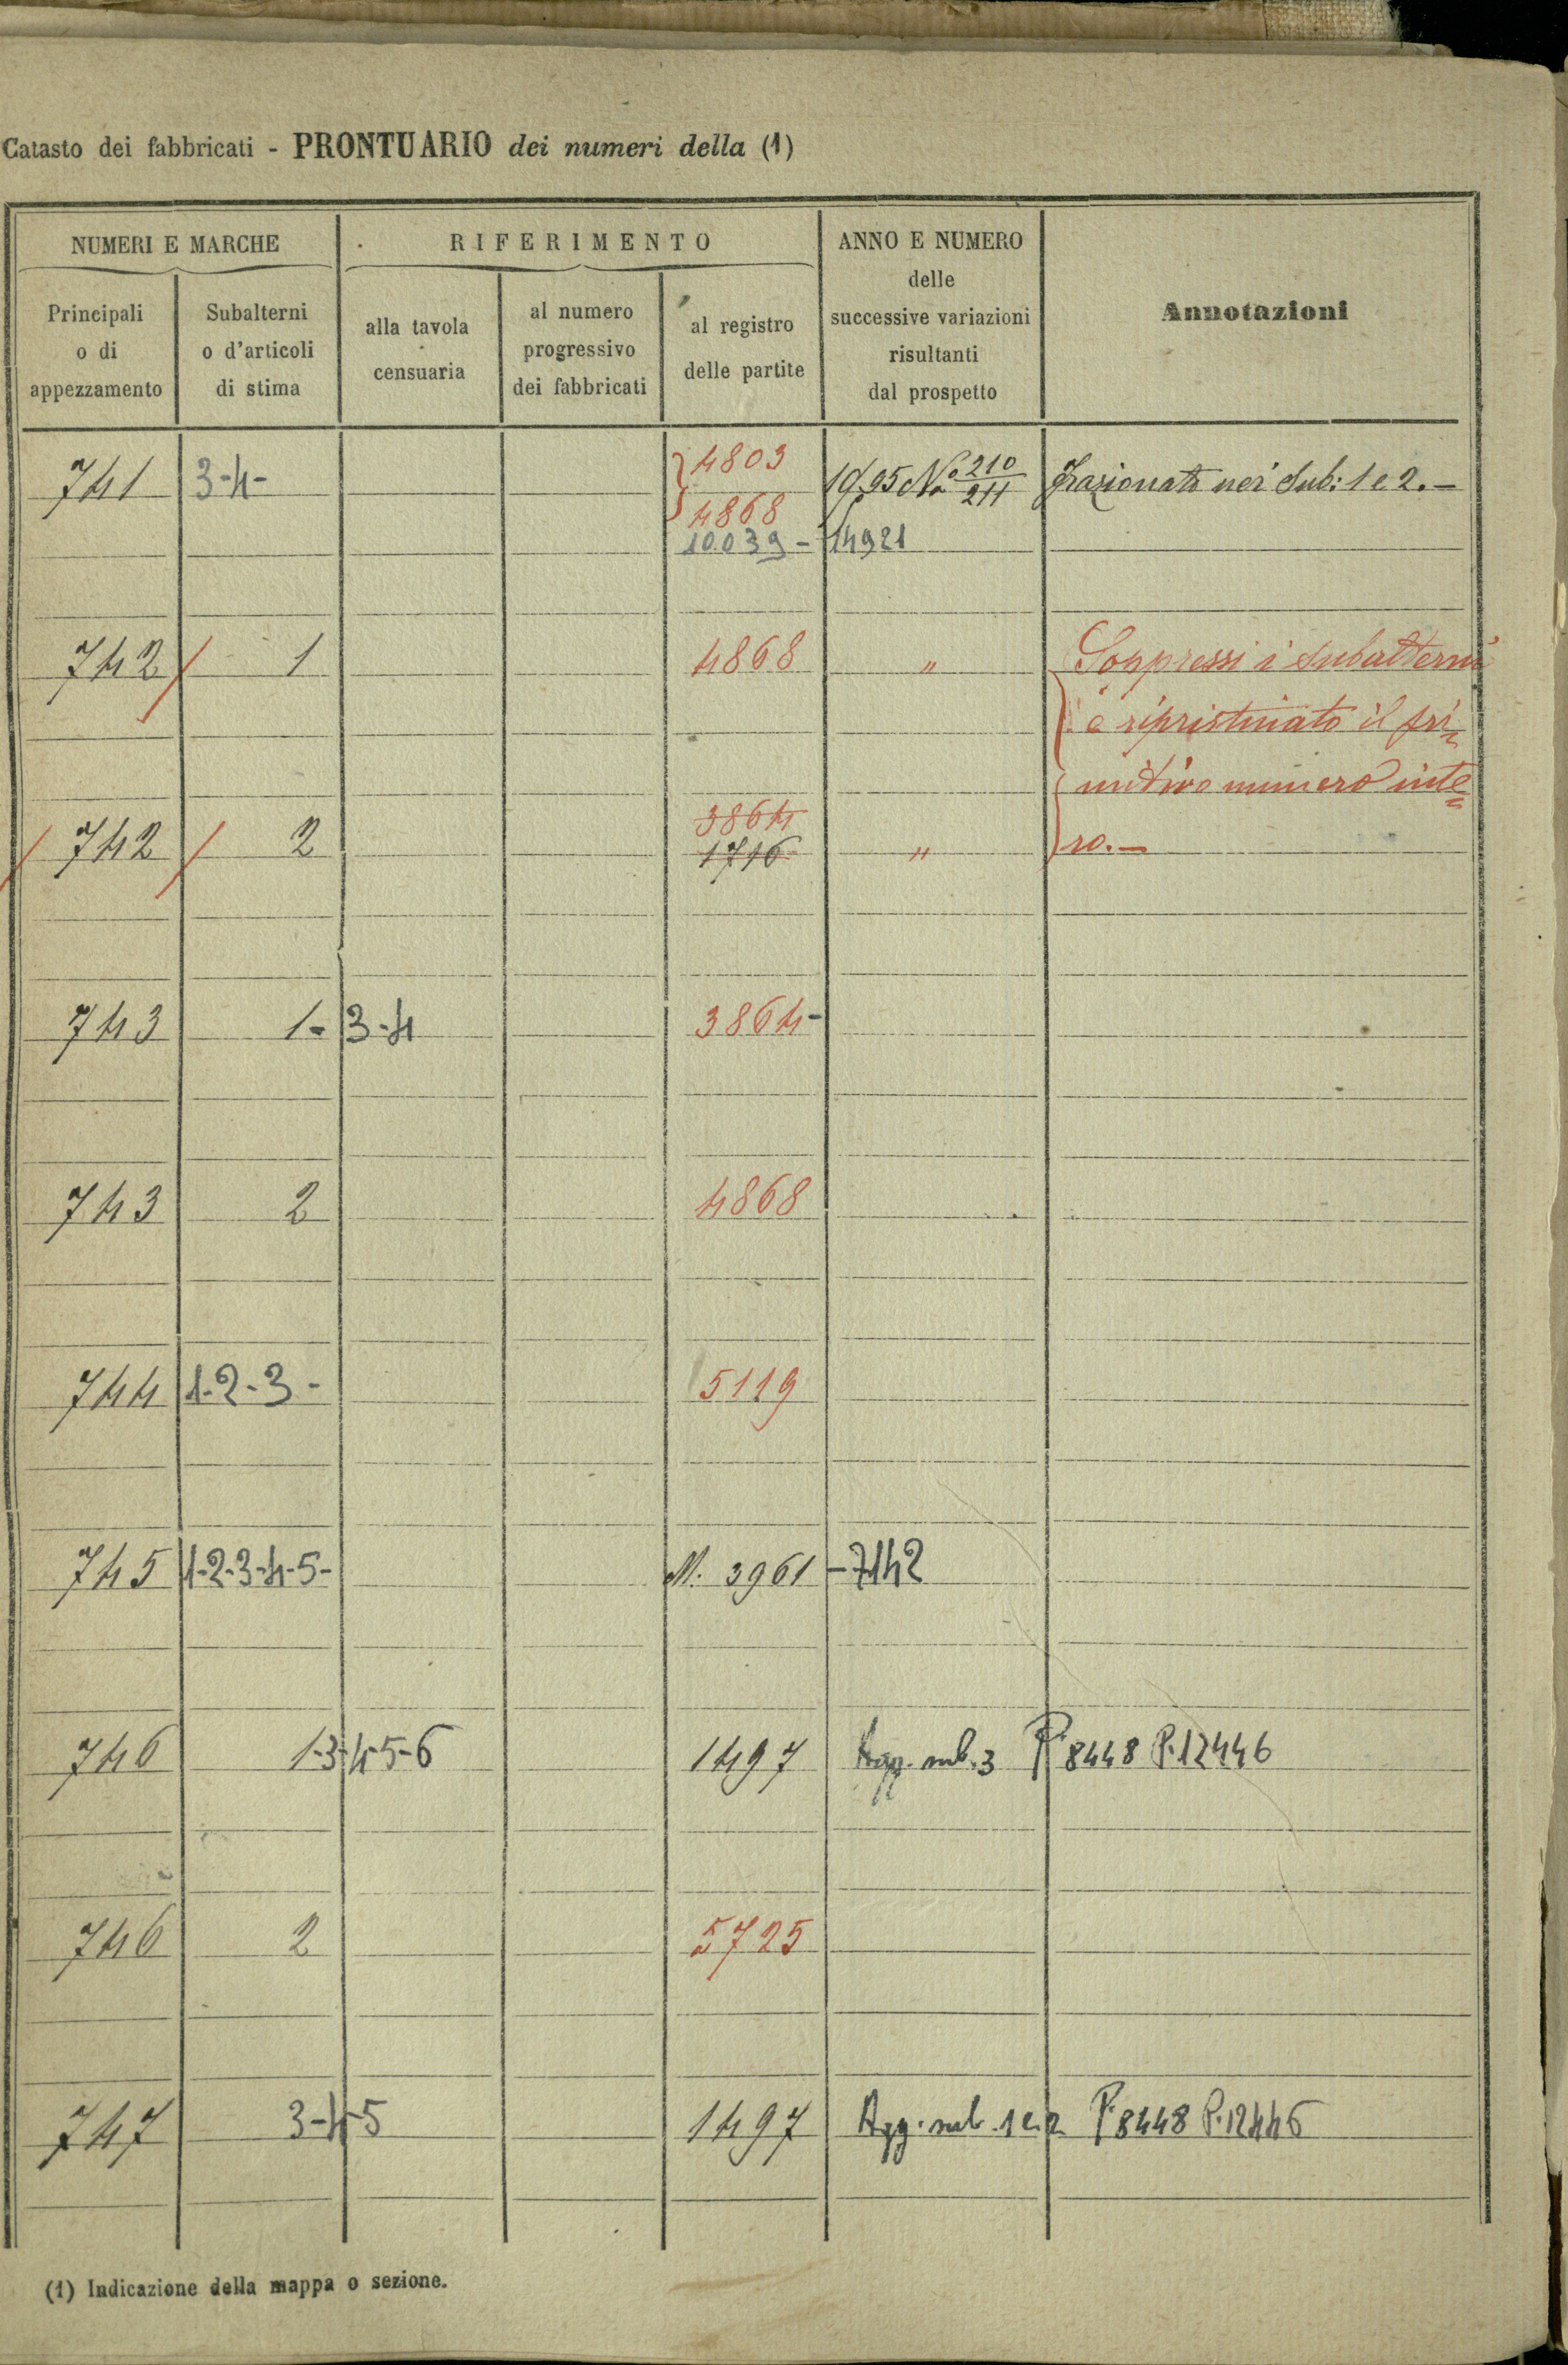 Catasto dei fabbricati - PRONTUARIO dei numeri della (1)
NUMERI E MARCHE
RIFERIMENTO
ANNO E NUMERO
delle
successive variazioni
risultanti
dal prospetto
Annotazioni
Principali
o di
appezzamento
Subalterni
o d'articoli
di stima
alla tavola
censuaria
al numero
progressivo
dei fabbricati
al registro
delle partite
4803
741 3-4- 4868 N.o 210/211 Frazionato nei Sub: 1 e 2.-
10.039 - 14921
742 1 4868 " Soppressi i subalterni
e ripristinato il pri=
mitivo numero inte=
3864
742 2 1716 " ro.-
743 1- 3-4 3864-
743 2 4868
744 1-2-3- 5119
745 1-2-3-4-5- M. 3961 -7142
746 1-3-4-5-6 1497 Agg. sub. 3 P. 8448 P. 12446
746 2 5725
747 3-4-5 1497 Agg. sub. 1 e 2 P. 8448 P. 12446
(1) Indicazione della mappa o sezione.